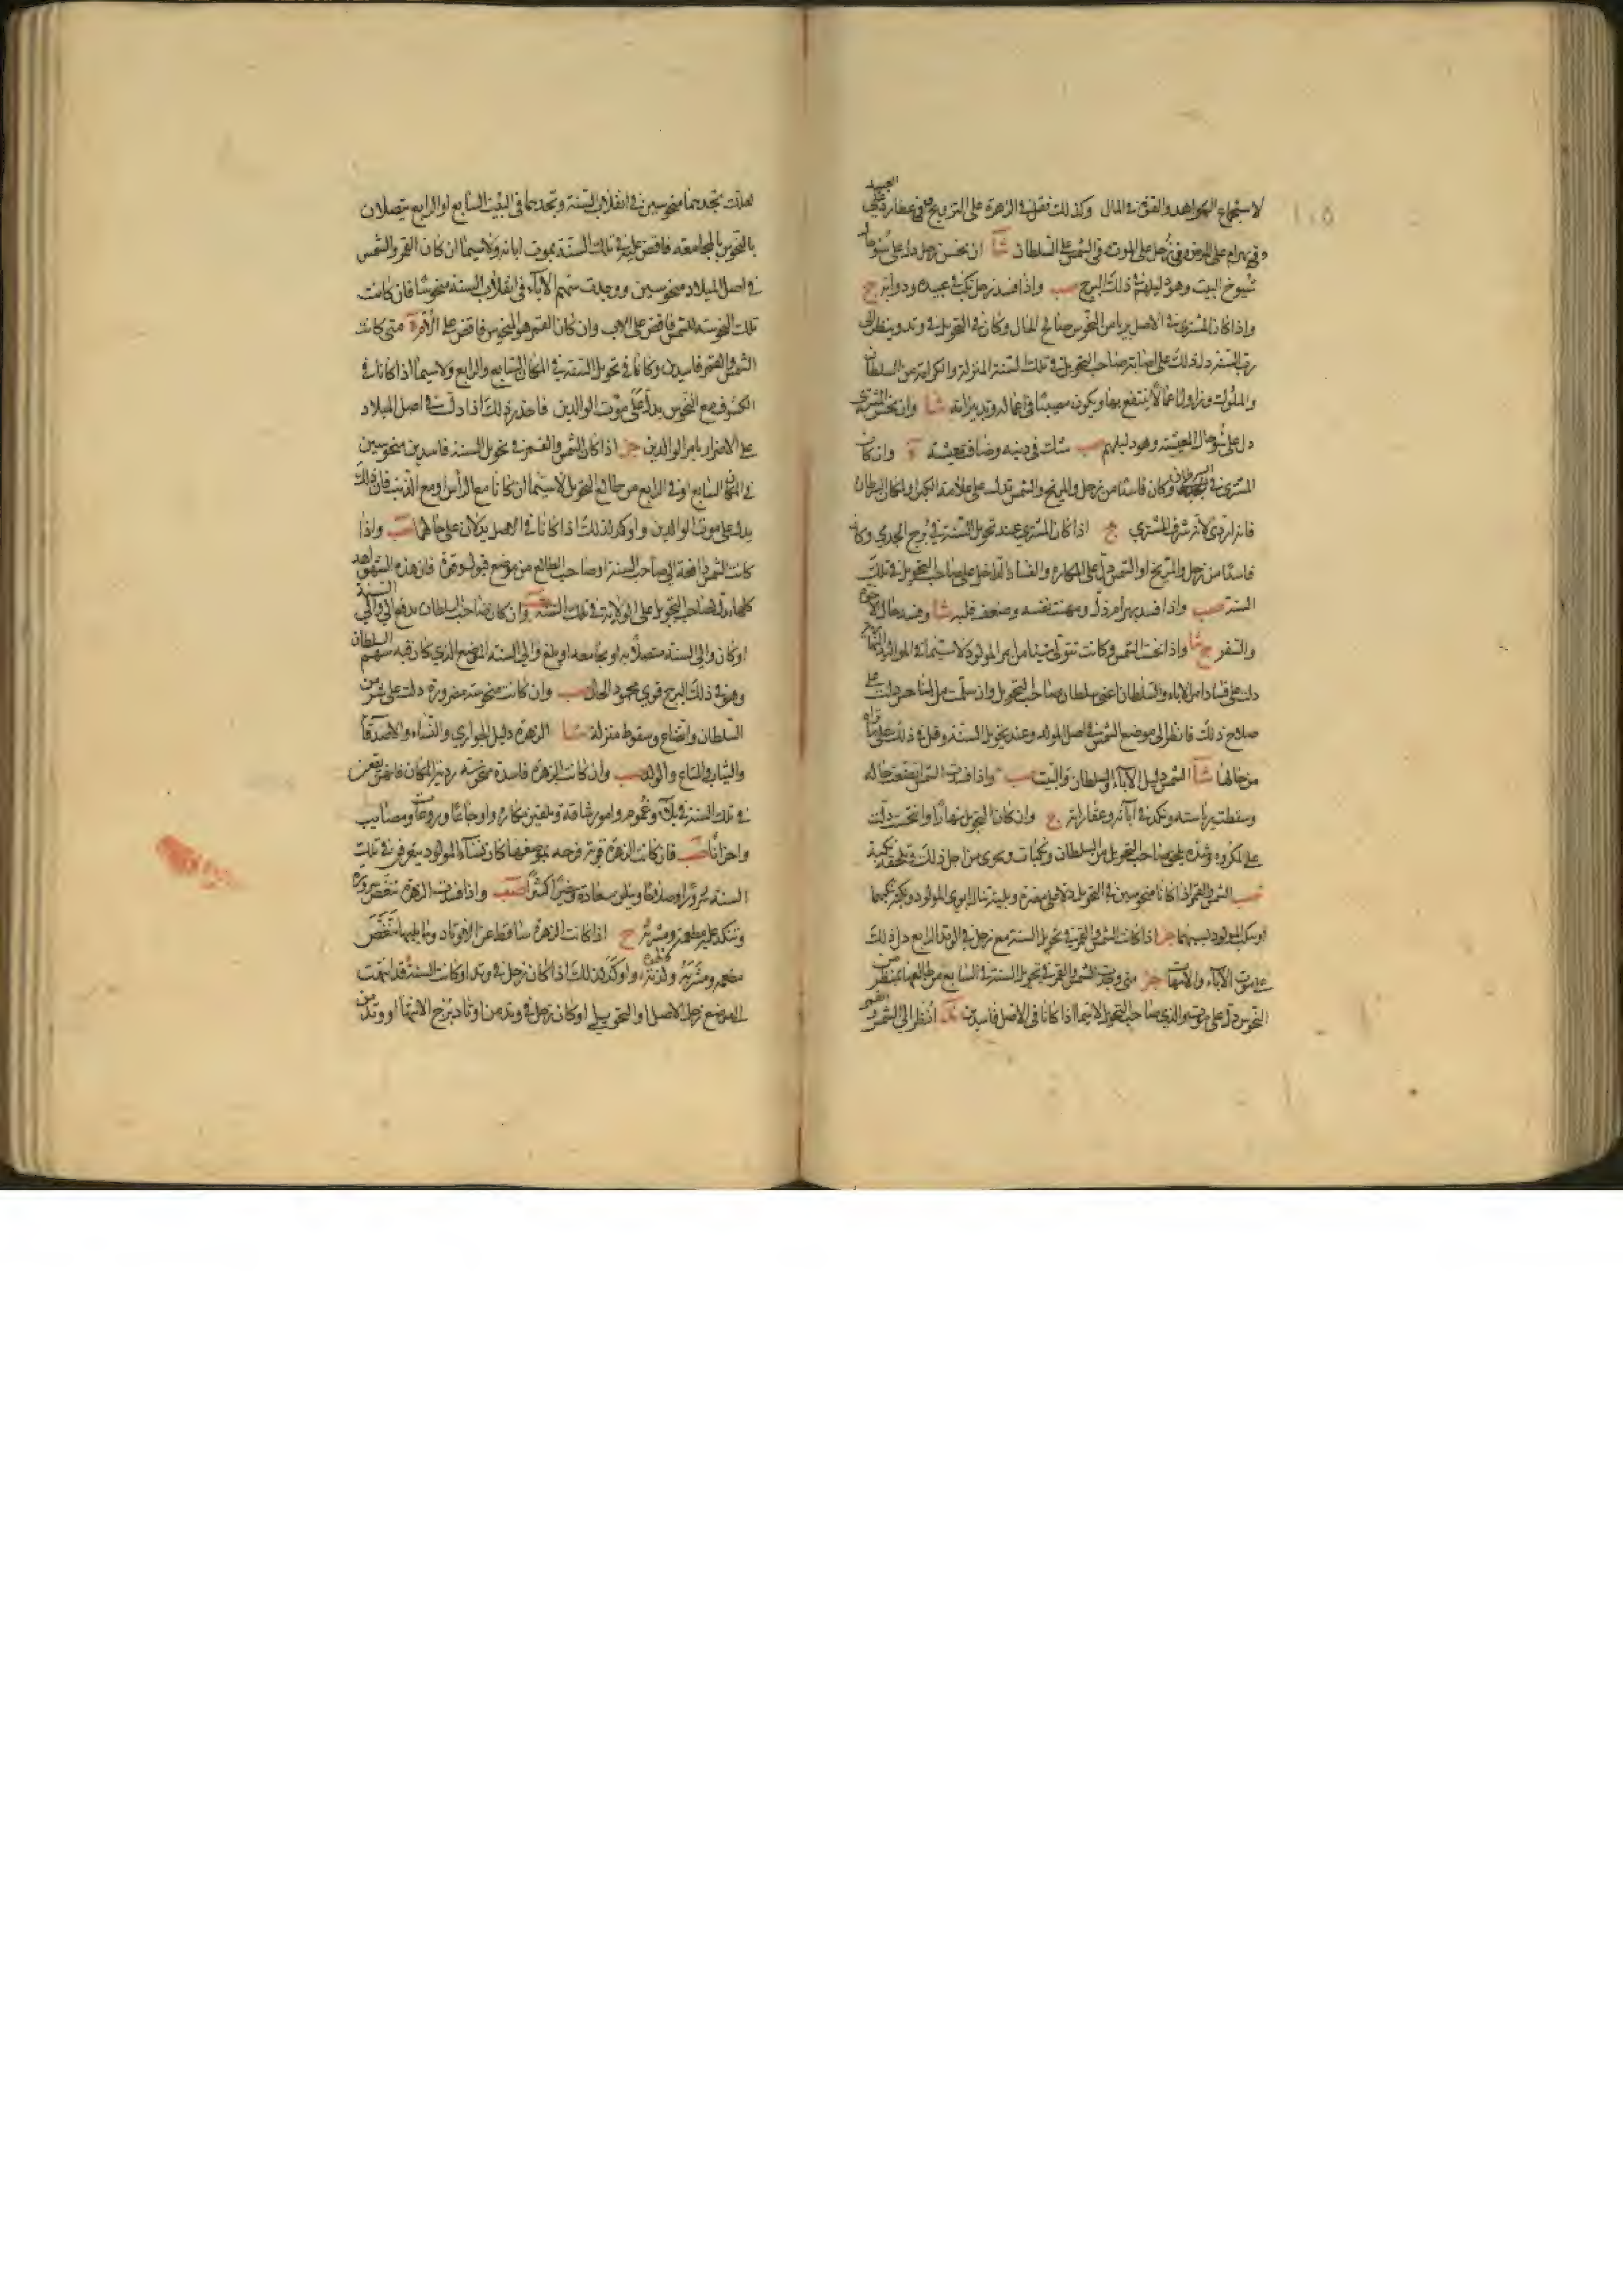 ١٠٥
لاستجماع الشواهد والقوة في المال وكذلك فقل في الزهرة على التزويج وفي عطارد على العبيد
وفي بهرام على المرض وفي زحل على الموت وفي الشمس على السلطان شآ ان نحس زحل دل على سوء حال
شيوخ البيت وهو دليلهم في ذلك البرج صب واذا فسد زحل نكب في عبيده ودوابه ج
واذا كان المشتري في الاصل بريا من النحوس صالح الحال وكان في التحويل في وتد وينظر الى
رب السنة دل ذلك على اصابة صاحب التحويل في تلك السنة المنزلة والكرامة من السلطان
والملوك وزاول اعمالا ينتفع بها ويكون مصيبا في اعماله وتدبيراته شآ وان نحس المشتري
دل على سوء حال المعيشة وهو دليلهم صب شك في دينه وضاق معيشته ة وان كان
المشتري في السرطان وكان فاسدا من زحل والمريخ والشمس تدل على علامة الكبر اولا كان السرطان
فانه اردى لانه شرف المشتري ج اذا كان المشتري عند تحويل السنة في برج الجدي وكان
فاسدا من زحل والمريخ او الشمس دل على المكاره والفساد الداخل على صاحب التحويل في تلك
السنة صب واذا فسد بهرام ذل ومهنت نفسه وضعف قلبه شآ وفسد حال الاخوة
والسفر ج شآ واذا نحست الشمس وكانت تتولى شيئا من امر المولود لا سيما في المواليد النهارية
دلت على فساد امر الاباء والسلطان اعني سلطان صاحب التحويل وان سلمت من المناحس دلت على
صلاح ذلك فانظر الى موضع الشمس في اصل المولد وعند تحويل السنة وقل في ذلك على ما تراه
من حالها شآ الشمس دليل الآباء والسلطان والبيت صب واذا فسدت الشمس اتضعت حاله
وسقطت رياسته ونكد في آبائه وعقاراته ج وان كان التحويل نهارا وانتحست دلت
على مكروه وشدة يلحق صاحب التحويل من السلطان ونكبات من اجل ذلك
صب الشمس والقمر اذا كانا منحوسين في التحويل دلا على مضرة وبلية تنال ابوي المولود
او ينكب المولود بسببهما جز اذا كانت الشمس والقمر في تحويل السنة مع زحل في الوتد الرابع دل ذلك
على موت الآباء والامهات جز متى وجدت الشمس والقمر في تحويل السنة في السابع من طالعها بمنظر من
النحوس دل على موت والدي صاحب التحويل لا سيما اذا كانا في الاصل فاسدين انظر الى الشمس والقمر
لعلك تجدهما منحوسين في انقلاب السنة وتجدهما في البيت السابع او الرابع يتصلان
بالنحوس بالمجامعة فاقض عليه في تلك السنة بموت ابائه ولا سيما ان كان القمر والشمس
في اصل الميلاد منحوسين ووجدت سهم الآباء في انقلاب السنة منحوسا فان كانت
تلك النحوسة للشمس فاقض على الاب وان كان القمر هو المنحوس فاقض على الام ة متى كانت
الشمس والقمر فاسدين وكانا في تحويل السنة في المكان السابع والرابع ولا سيما اذا كانا في
الكسوف مع النحوس يدل على موت الوالدين فاحذر ذلك اذا دلت في اصل الميلاد
على الاضرار بامر الوالدين جز اذا كان الشمس والقمر في تحويل السنة فاسدين منحوسين
في المكان السابع او في الرابع من طالع التحويل لا سيما ان كانا مع الرأس او مع الذنب فان ذلك
يدل على موت الوالدين واوكد لذلك اذا كانا في الاصل يدلان على صب واذا
كانت الشمس دافعة الى صاحب السنة او صاحب الطالع من موضع قبول وقوة فان هذه الشواهد
كلها دل صاحب التحويل على الولاية في تلك السنة وان كان صاحب السلطان يدفع الى والي السنة
او كان والي السنة متصلا به او يجامعه او بلغ والي السنة الموضع الذي كان فيه سهم السلطان
وهو في ذلك البرج قوي محمود الحال صب وان كانت منحوسة مضرورة دلت على شر من
السلطان واتضاع وسقوط منزلة شآ الزهرة دليل الجواري والنساء والاصدقاء
والثياب والمتاع والولد صب وان كانت الزهرة فاسدة منحوسة ردية المكان
في تلك السنة في بلاء وغموم وامور شاقة ويلقين مكاره واوجاعا وروعات ومصايب
واحزانا صب فان كانت الزهرة قوية فرحة بموضعها كان نساء المولود يعرفن في تلك
السنة سرورا وصلاحا ويلقى سعادة وخيرا كثيرا صب واذا فسدت الزهرة تنغص سروره
وتنكد عليه مطعمه ومشربه ج اذا كانت الزهرة ساقطة عن الاوتاد وما يليها تنغص
مطعمه ومشربه ولذته واوكد لذلك اذا كان زحل في وتد او كانت السنة قد انتهت
الى موضع زحل الاصلي او التحويلي او كان زحل في وتد من اوتاد برج الانتهاء او وتد من